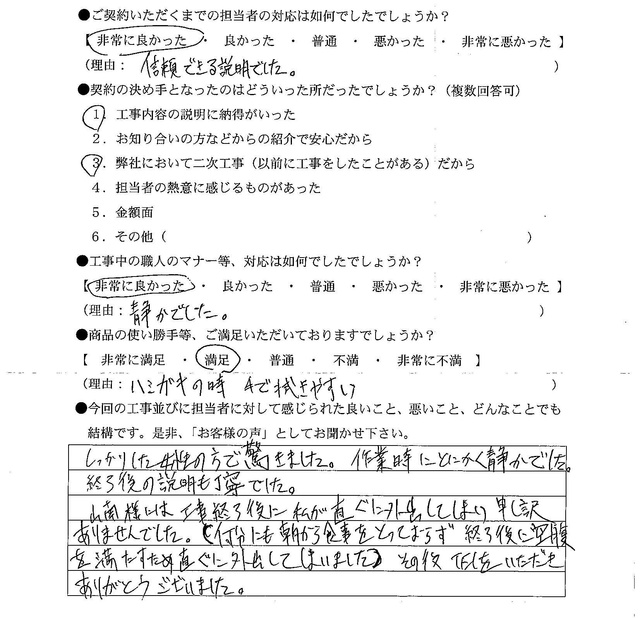 ●ご契約いただくまでの担当者の対応は如何でしたでしょうか？
【 非常に良かった ・ 良かった ・ 普通 ・ 悪かった ・ 非常に悪かった 】
（理由： 信頼できる説明でした。 ）
●契約の決め手となったのはどういった所だったでしょうか？（複数回答可）
1．工事内容の説明に納得がいった
2．お知り合いの方などからの紹介で安心だから
3．弊社において二次工事（以前に工事をしたことがある）だから
4．担当者の熱意に感じるものがあった
5．金額面
6．その他（ ）
●工事中の職人のマナー等、対応は如何でしたでしょうか？
【 非常に良かった ・ 良かった ・ 普通 ・ 悪かった ・ 非常に悪かった 】
（理由： 静かでした。 ）
●商品の使い勝手等、ご満足いただいておりますでしょうか？
【 非常に満足 ・ 満足 ・ 普通 ・ 不満 ・ 非常に不満 】
（理由： ハミガキの時 拭きやすい ）
●今回の工事並びに担当者に対して感じられた良いこと、悪いこと、どんなことでも
結構です。是非、「お客様の声」としてお聞かせ下さい。
しっかりした女性の方で驚きました。 作業時にとにかく静かでした。
終了後の説明も丁寧でした。
様には 工事終了後に 私が直ぐに外出してしまい 申し訳
ありませんでした。（何分にも朝から食事をとっておらず 終了後に空腹
を満たすため直ぐに外出してしまいました） その後 をいただき
ありがとうございました。